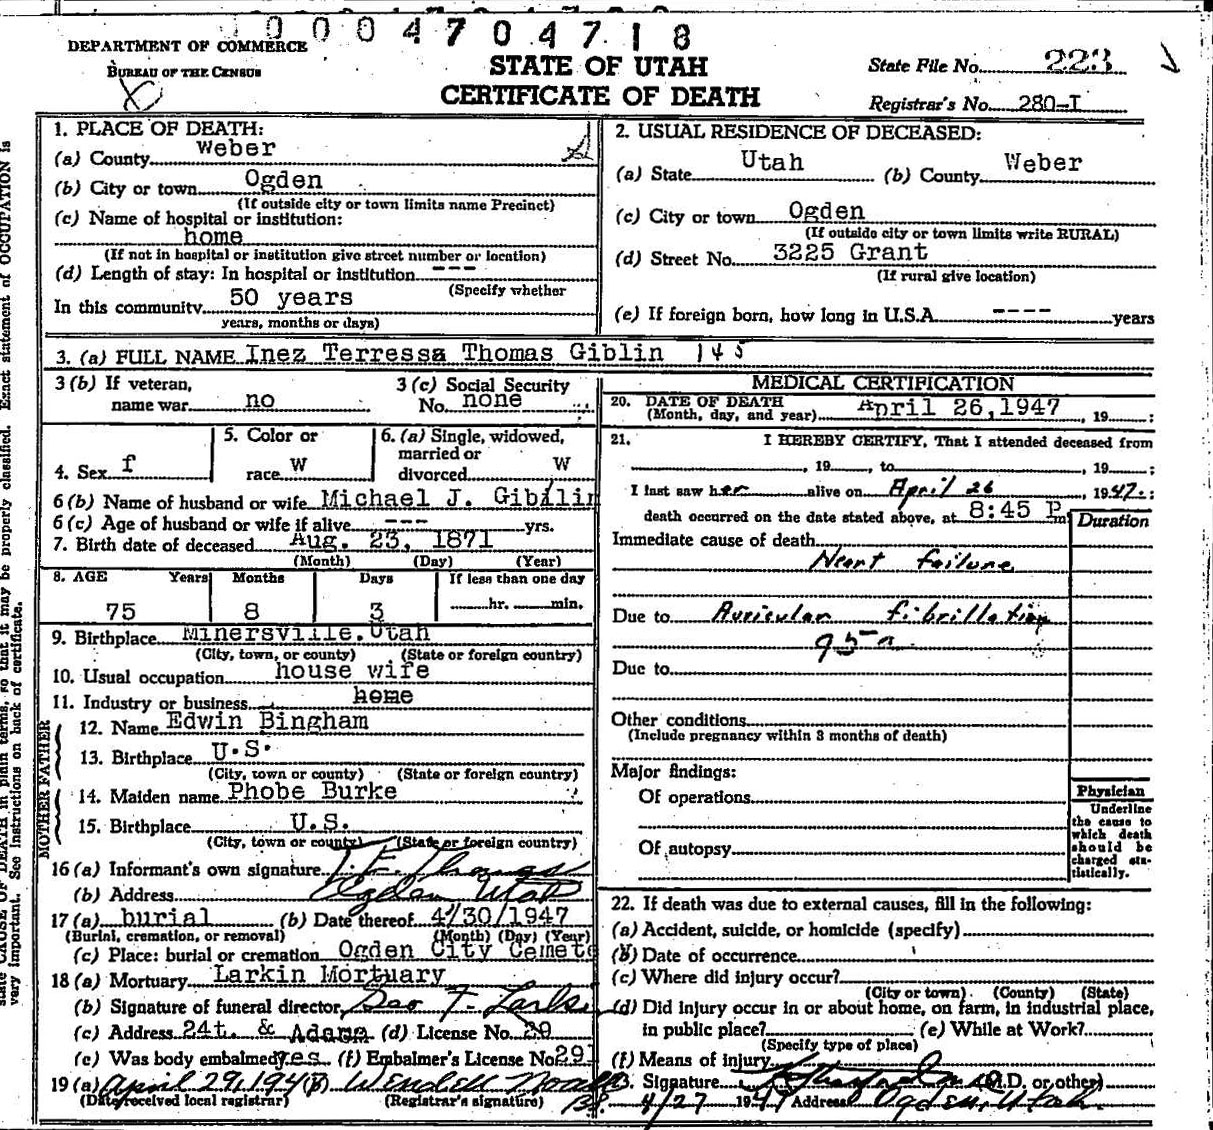 0 0 0 4 7 0 4 7 1 8
DEPARTMENT OF COMMERCE
BUREAU OF THE CENSUS
STATE OF UTAH
CERTIFICATE OF DEATH
State File No. 223
Registrar's No. 280-I
1. PLACE OF DEATH:
(a) County Weber
(b) City or town Ogden
(If outside city or town limits name Precinct)
(c) Name of hospital or institution:
home
(If not in hospital or institution give street number or location)
(d) Length of stay: In hospital or institution ---
(Specify whether
In this community 50 years
years, months or days)
2. USUAL RESIDENCE OF DECEASED:
(a) State Utah (b) County Weber
(c) City or town Ogden
(If outside city or town limits write RURAL)
(d) Street No. 3225 Grant
(If rural give location)
(e) If foreign born, how long in U.S.A. ---- years
3. (a) FULL NAME Inez Terressa Thomas Giblin 145
3 (b) If veteran,
name war no
3 (c) Social Security
No. none
4. Sex f
5. Color or
race W
6. (a) Single, widowed,
married or
divorced W
6 (b) Name of husband or wife Michael J. Gibilin
6 (c) Age of husband or wife if alive --- yrs.
7. Birth date of deceased Aug. 23, 1871
(Month) (Day) (Year)
8. AGE Years Months Days If less than one day
75 8 3 hr. min.
9. Birthplace Minersville. Utah
(City, town, or county) (State or foreign country)
10. Usual occupation house wife
11. Industry or business home
FATHER
12. Name Edwin Bingham
13. Birthplace U.S.
(City, town or county) (State or foreign country)
MOTHER
14. Maiden name Phobe Burke
15. Birthplace U.S.
(City, town or county) (State or foreign country)
16 (a) Informant's own signature T. E. Thomas
(b) Address Ogden Utah
17 (a) burial (b) Date thereof 4/30/1947
(Burial, cremation, or removal) (Month) (Day) (Year)
(c) Place: burial or cremation Ogden City Cemete
18 (a) Mortuary Larkin Mortuary
(b) Signature of funeral director Geo F. Larkin
(c) Address 24t. & Adams (d) License No. 20
(e) Was body embalmed yes (f) Embalmer's License No 291
19 (a) April 29, 194 (b) Wendell
(Date received local registrar) (Registrar's signature)
MEDICAL CERTIFICATION
20. DATE OF DEATH
(Month, day, and year) April 26,1947, 19 ;
21. I HEREBY CERTIFY, That I attended deceased from
, 19 , to , 19 ;
I last saw her alive on April 26, 1947 ;
death occurred on the date stated above, at 8:45 P m
Duration
Immediate cause of death
Heart failure
Due to Auricular fibrillation
95a
Due to
Other conditions
(Include pregnancy within 3 months of death)
Major findings:
Of operations
Of autopsy
Physician
Underline
the cause to
which death
should be
charged sta-
tistically.
22. If death was due to external causes, fill in the following:
(a) Accident, suicide, or homicide (specify)
(b) Date of occurrence
(c) Where did injury occur?
(City or town) (County) (State)
(d) Did injury occur in or about home, on farm, in industrial place,
in public place? (e) While at Work?
(Specify type of place)
(f) Means of injury
23. Signature (M.D. or other)
4/27 1947 Address Ogden, Utah.
state CAUSE OF DEATH in plain terms, so that it may be properly classified. Exact statement of OCCUPATION is
very important. See instructions on back of certificate.